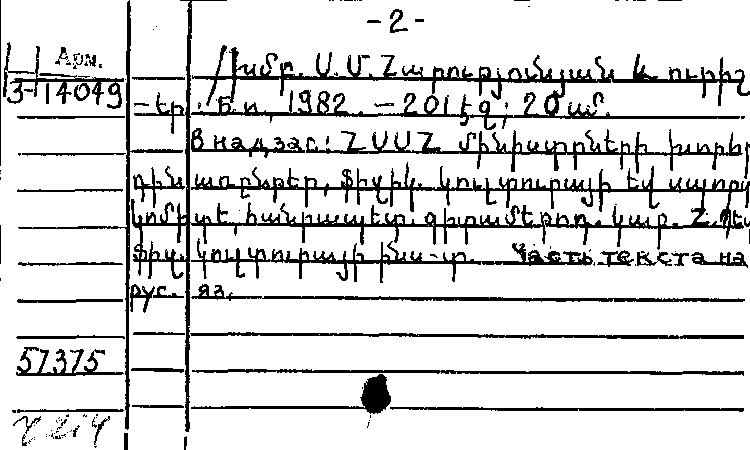 -2-
Арм.
3-114049
/խմբ. Ս.Մ. Հարությունյան և ուրիշ
-եր. Б.п., 1982. - 201 էջ; 20 սմ.
В надзаг.: ՀՍՍՀ մինիստրների խորհր
դին առընթեր, ֆիզիկ. կուլտուրայի եվ սպորտ
կոմիտե, հանրապետ. գիտամեթոդ. կաբ. Հ.
ֆիզ. կուլտուրայի ինս-տ. Часть текста на
рус. яз.
57375